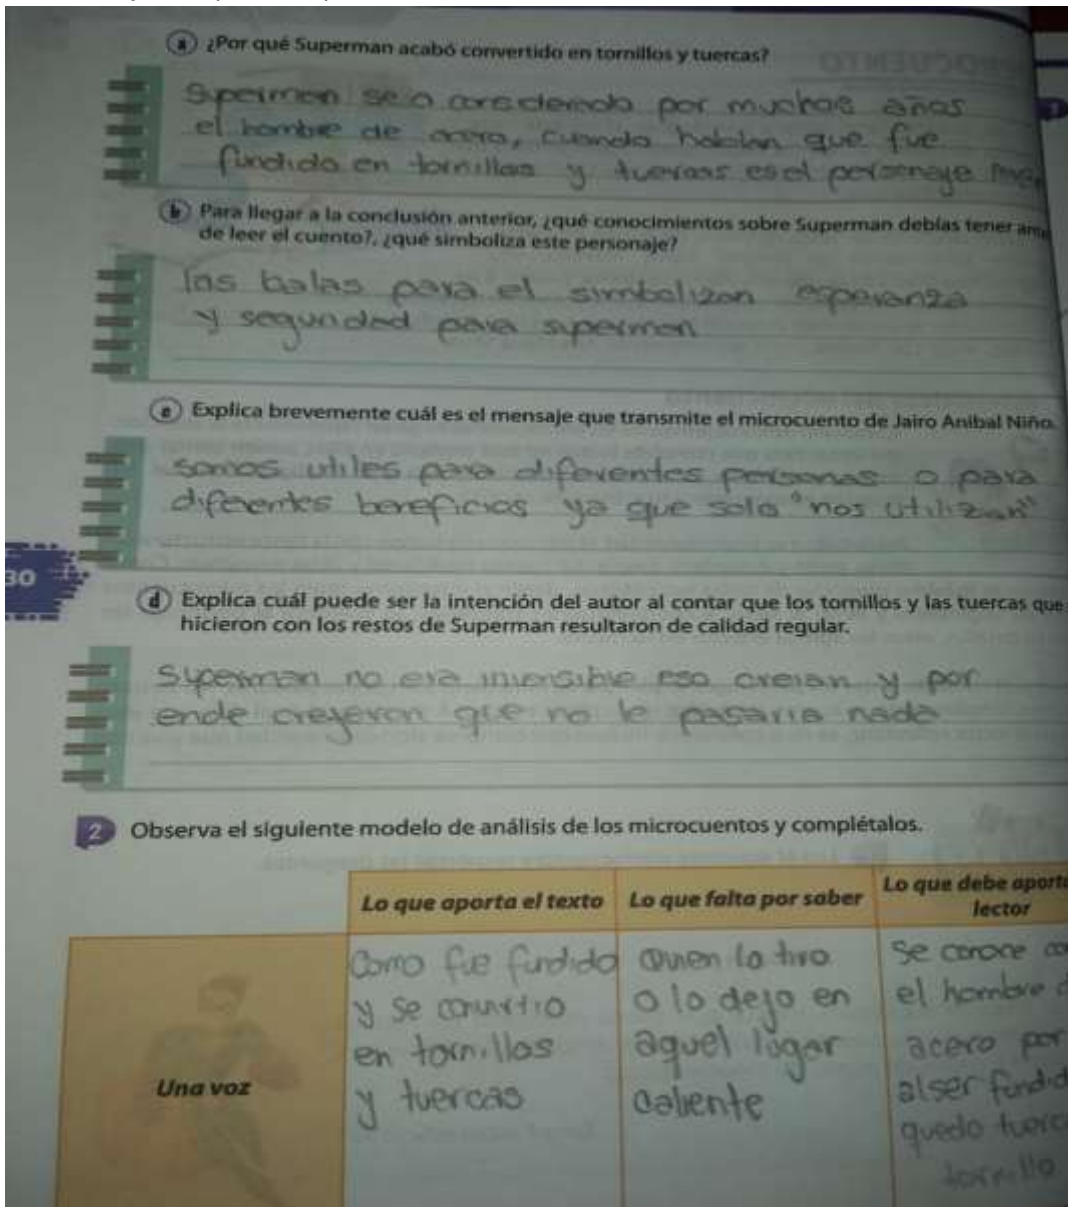 a ¿Por qué Superman acabó convertido en tornillos y tuercas?
Superman se a considerado por muchos años
el hombre de acero, cuando hablan que fue
fundido en tornillos y tuercas es el personaje
b Para llegar a la conclusión anterior, ¿qué conocimientos sobre Superman debías tener
de leer el cuento?, ¿qué simboliza este personaje?
las balas para el simbolizan esperanza
y seguridad para superman
Explica brevemente cuál es el mensaje que transmite el microcuento de Jairo Aníbal Niño.
somos utiles para diferentes personas o para
diferentes beneficios ya que solo "nos utilizan"
30
d Explica cuál puede ser la intención del autor al contar que los tornillos y las tuercas que
hicieron con los restos de Superman resultaron de calidad regular.
Superman no era eso creian y por
ende creyeron que no le pasaria nada
2 Observa el siguiente modelo de análisis de los microcuentos y complétalos.
Lo que aporta el texto Lo que falta por saber Lo que debe aport
lector
Como fue fundido
y se convirtio
en tornillos
y tuercas
Quien lo tiro
o lo dejo en
aquel lugar
caliente
Se conoce co
el hombre d
acero por
al ser fundid
quedo tuerc
tornillo
Una voz